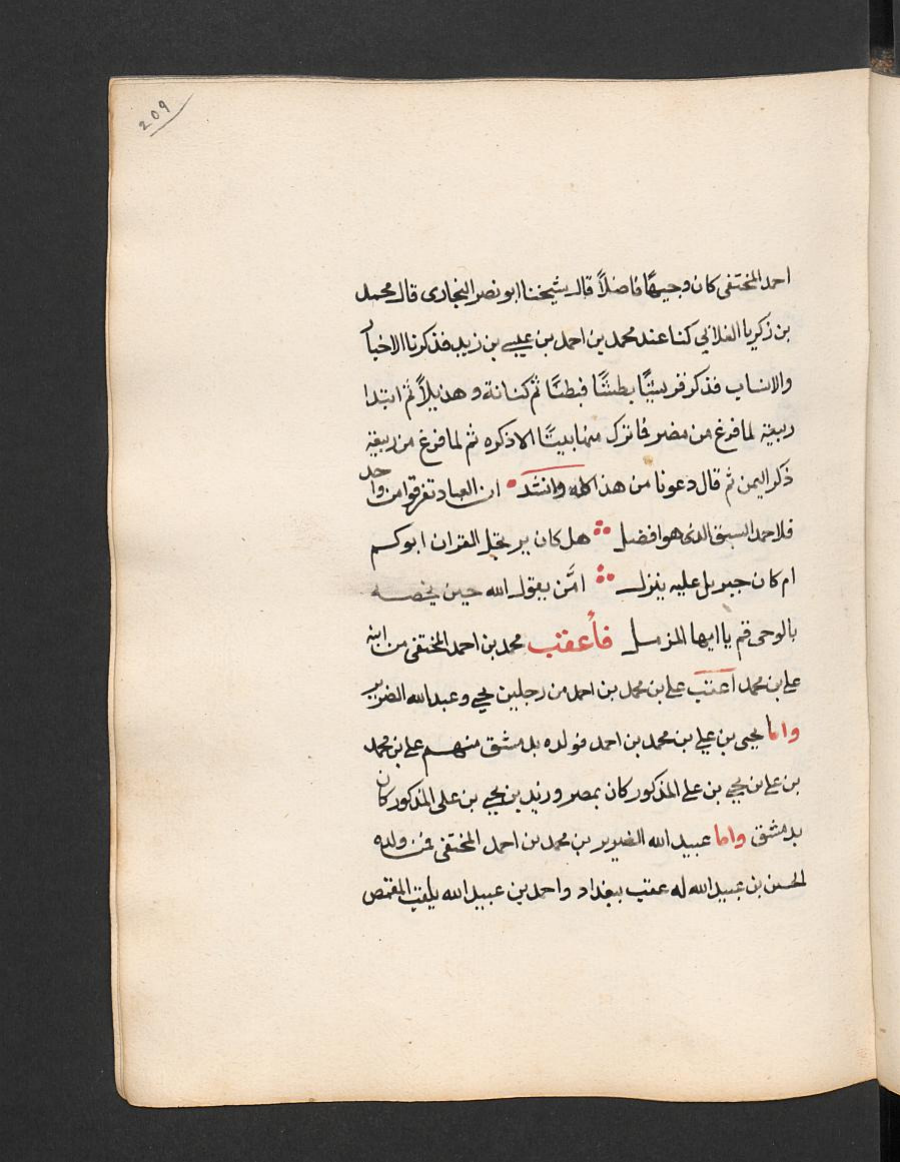 209
احمد المختفى كان وجيهًا فاضلاً قال شيخنا ابو نصر البخارى قال محمد
بن زكريا الغلابي كنا عند محمد بن احمد بن عيسى بن زيد فذكرنا الاخبار
والانساب فذكر قريشًا بطنًا فبطنًا ثم كنانة و هذيلاً ثم ابتدا
ربيعة لما فرغ من مضر فاترك منها بيتًا الا ذكره ثم لما فرغ من ربيعة
ذكر اليمن ثم قال دعونا من هذا كله وانشد ان العباد تفرقوا من واحد
فلاحمد السبق الذى هو افضل هل كان يرتحل القران ابوكم
ام كان جبريل عليه ينزل امَّن يقول الله حين يخصه
بالوحى قم يا ايها المزمل فأعقب محمد بن احمد المختفى من ابنه
على بن محمد اعقب على بن محمد بن احمد من رجلين يحيى وعبد الله الضرير
واما يحيى بن على بن محمد بن احمد فولده بدمشق منهم على بن محمد
بن على بن يحيى بن على المذكور كان بمصر و زيد بن يحيى بن على المذكور كان
بدمشق واما عبيد الله الضرير بن محمد بن احمد المختفى فمن ولده
الحسن بن عبيد الله له عقب ببغداد واحمد بن عبيد الله يلقب